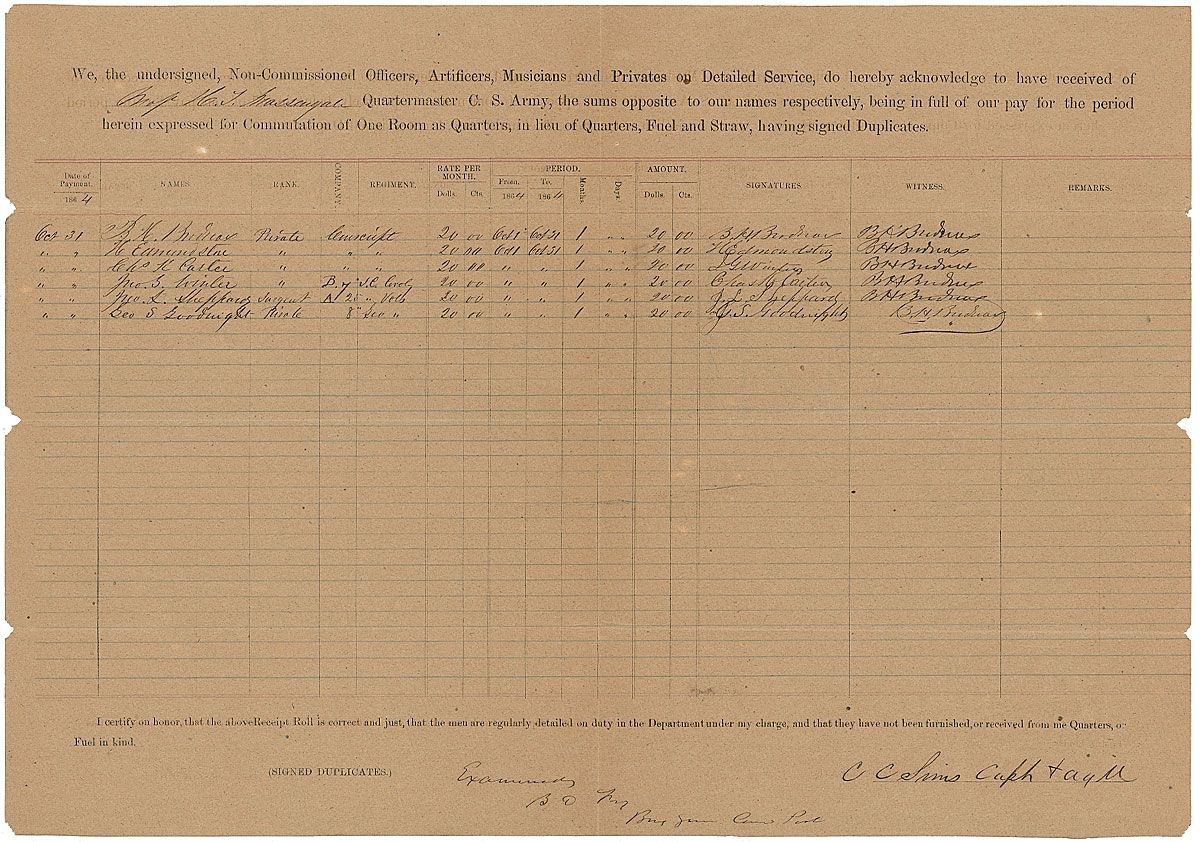 We, the undersigned, Non-Commissioned Officers, Artificers, Musicians and Privates on Detailed Service, do hereby acknowledge to have received of
H. T. Massengale Quartermaster C. S. Army, the sums opposite to our names respectively, being in full of our pay for the period
herein expressed for Commutation of One Room as Quarters, in lieu of Quarters, Fuel and Straw, having signed Duplicates.
Date of Payment. 1864 NAMES. RANK. COMPANY. REGIMENT. RATE PER MONTH. Dolls. Cts. PERIOD. From. 1864 To. 1864 Months. Days. AMOUNT. Dolls. Cts. SIGNATURES. WITNESS. REMARKS.
Oct 31 B. H. Private Conscript 20 00 Oct 1 Oct 31 1 " " 20 00 B H B H
" " H Edmondston " " " 20 00 Oct 1 Oct 31 1 " " 20 00 H Edmondston B H
" " Chs K Carter " " " 20 00 " " 1 " " 20 00 J G Winter B H
" " Jno. G. Winter " B 20 00 " " 1 " " 20 00 Chas K Carter B H
" " Jno. L. Sheppard Sargent A 25 " Vols 20 00 " " 1 " " 20 00 J L Sheppard B H
" " Geo S Goodnight Private 8" Geo " 20 00 " " 1 " " 20 00 G. S. Goodnight B H
I certify on honor, that the above Receipt Roll is correct and just, that the men are regularly detailed on duty in the Department under my charge, and that they have not been furnished, or received from me Quarters, or
Fuel in kind.
(SIGNED DUPLICATES.) Examined C C Sims Capt & a q m
B D Fry
Brig Gen Com Post